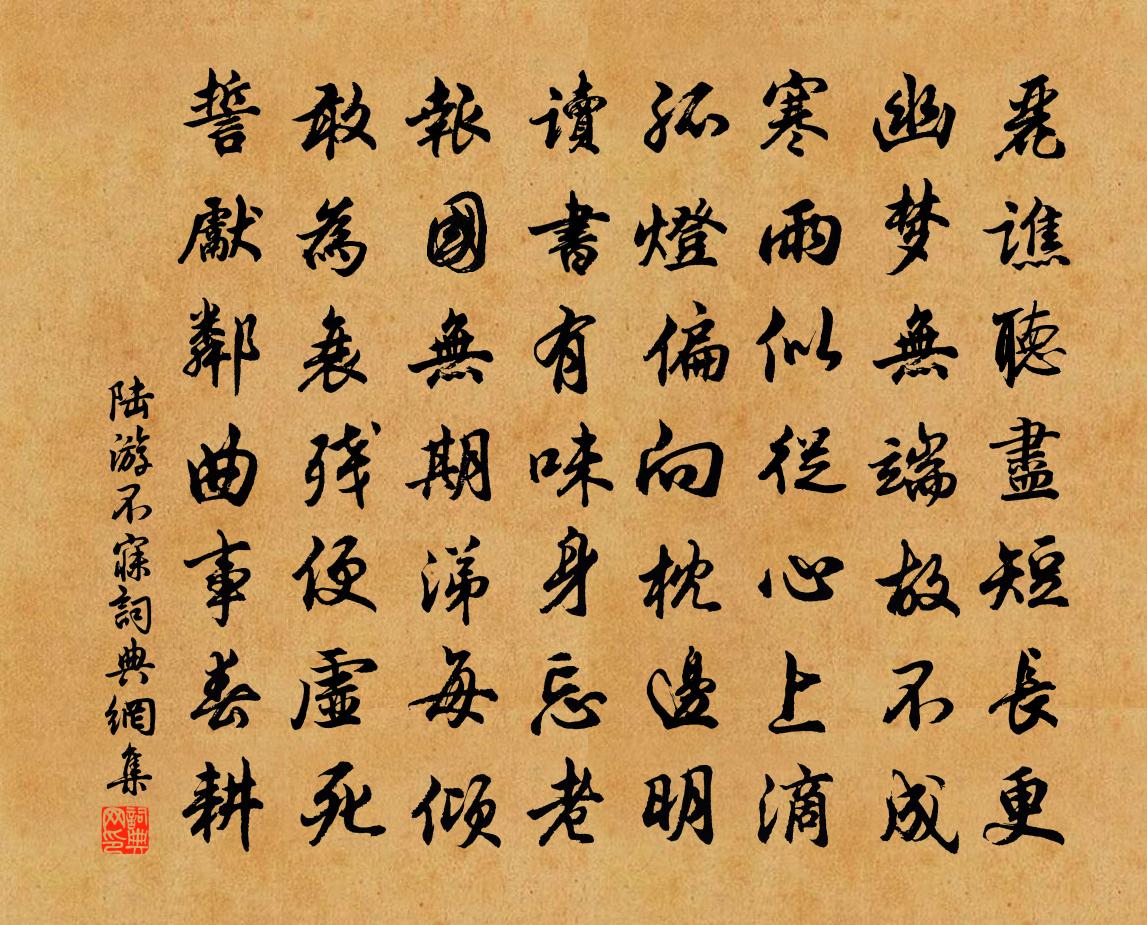 麗譙聽盡短長更
幽梦無端故不成
寒雨似從心上滴
孤燈偏向枕邊明
讀書有味身忘老
報國無期涕每傾
敢為衰残便虛死
誓獻鄰曲事春耕
陆游不寐詞典網集
詞典网印